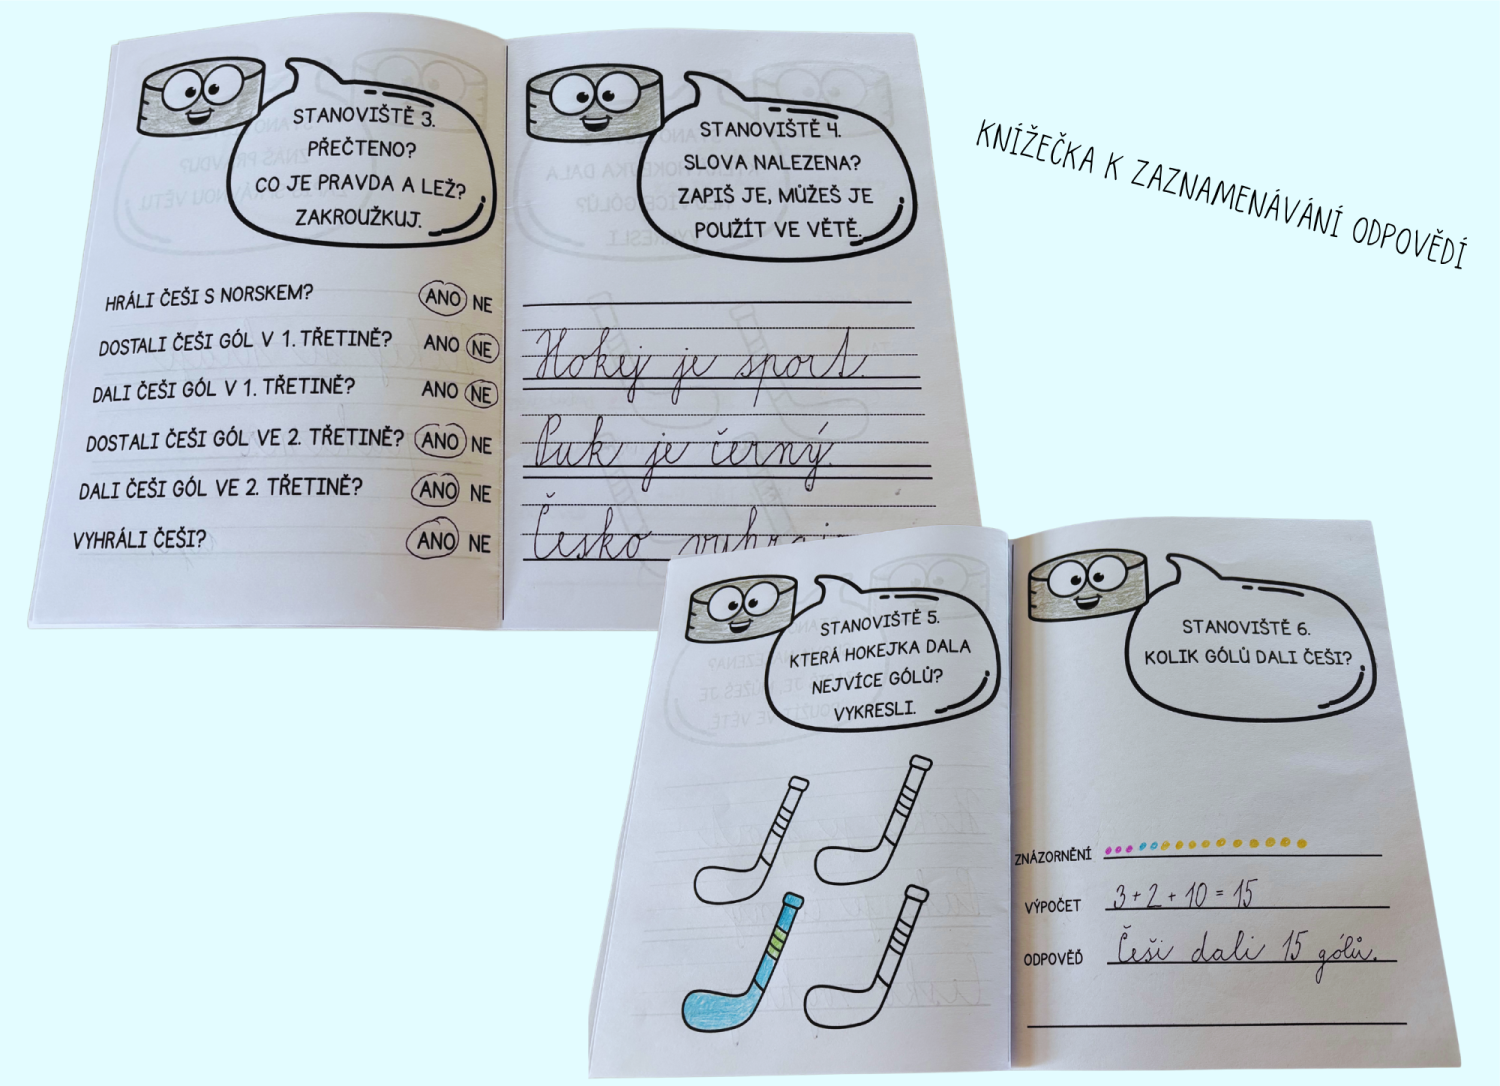 STANOVIŠTĚ 3.
PŘEČTENO?
CO JE PRAVDA A LEŽ?
ZAKROUŽKUJ.
HRÁLI ČEŠI S NORSKEM? ANO NE
DOSTALI ČEŠI GÓL V 1. TŘETINĚ? ANO NE
DALI ČEŠI GÓL V 1. TŘETINĚ? ANO NE
DOSTALI ČEŠI GÓL VE 2. TŘETINĚ? ANO NE
DALI ČEŠI GÓL VE 2. TŘETINĚ? ANO NE
VYHRÁLI ČEŠI? ANO NE
STANOVIŠTĚ 4.
SLOVA NALEZENA?
ZAPIŠ JE, MŮŽEŠ JE
POUŽÍT VE VĚTĚ.
Hokej je sport.
Puk je černý.
Česko
KNÍŽEČKA K ZAZNAMENÁVÁNÍ ODPOVĚDÍ
STANOVIŠTĚ 5.
KTERÁ HOKEJKA DALA
NEJVÍCE GÓLŮ?
VYKRESLI.
STANOVIŠTĚ 6.
KOLIK GÓLŮ DALI ČEŠI?
ZNÁZORNĚNÍ
VÝPOČET 3 + 2 + 10 = 15
ODPOVĚĎ Češi dali 15 gólů.